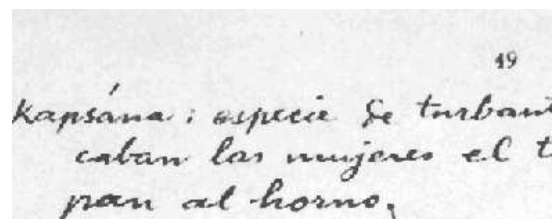 49
Kapsána: especie de turban
caban las mujeres el t
pan al horno,